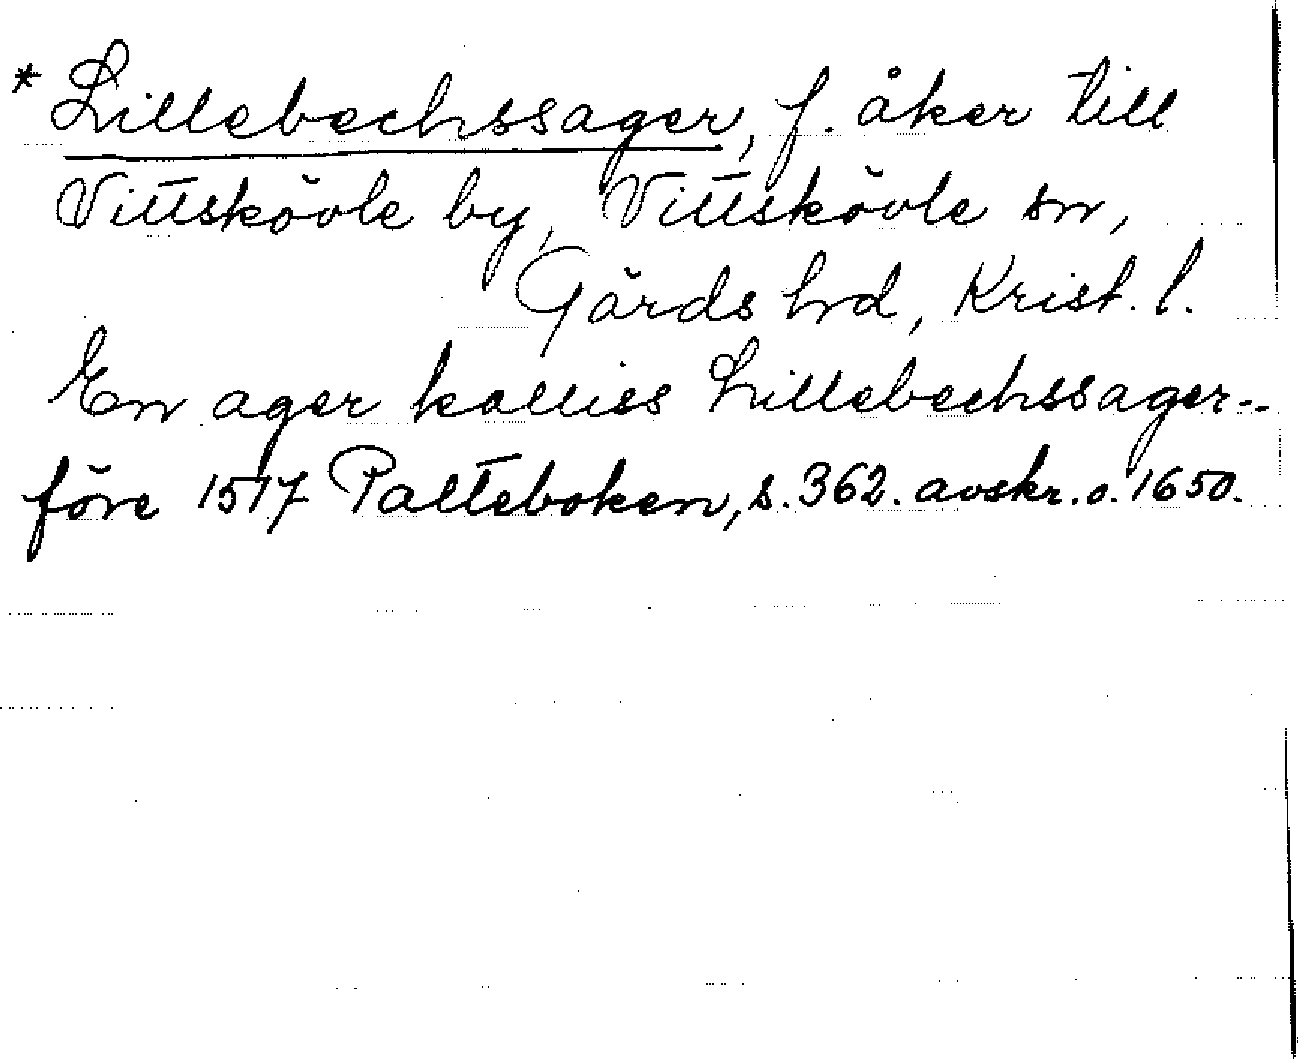 * Lillebechssager, f. åker till
Vittskövle by, Vittskövle sn,
Gärds hrd, Krist. l.
En ager kallies Lillebechssager..
före 1517 Palteboken, s. 362. avskr. o. 1650.